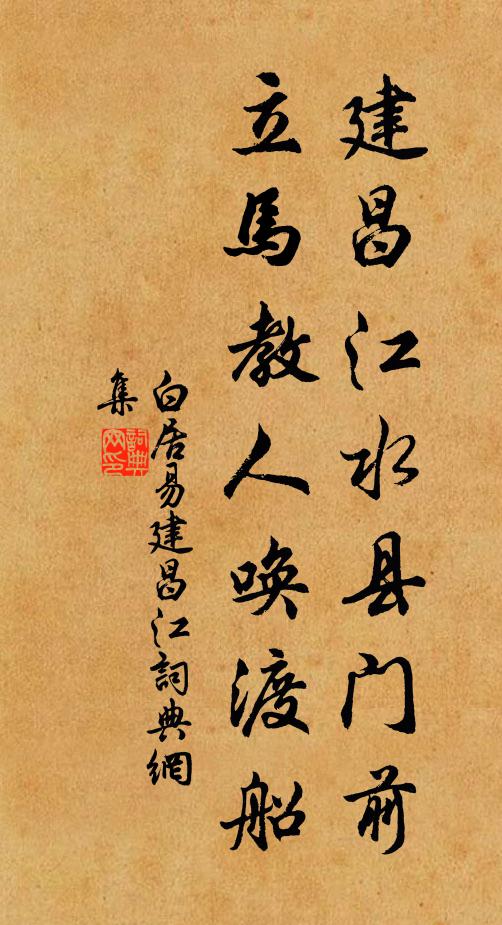 建昌江水县门前
立馬教人唤渡船
白居易建昌江詞典網
集
詞典
网印